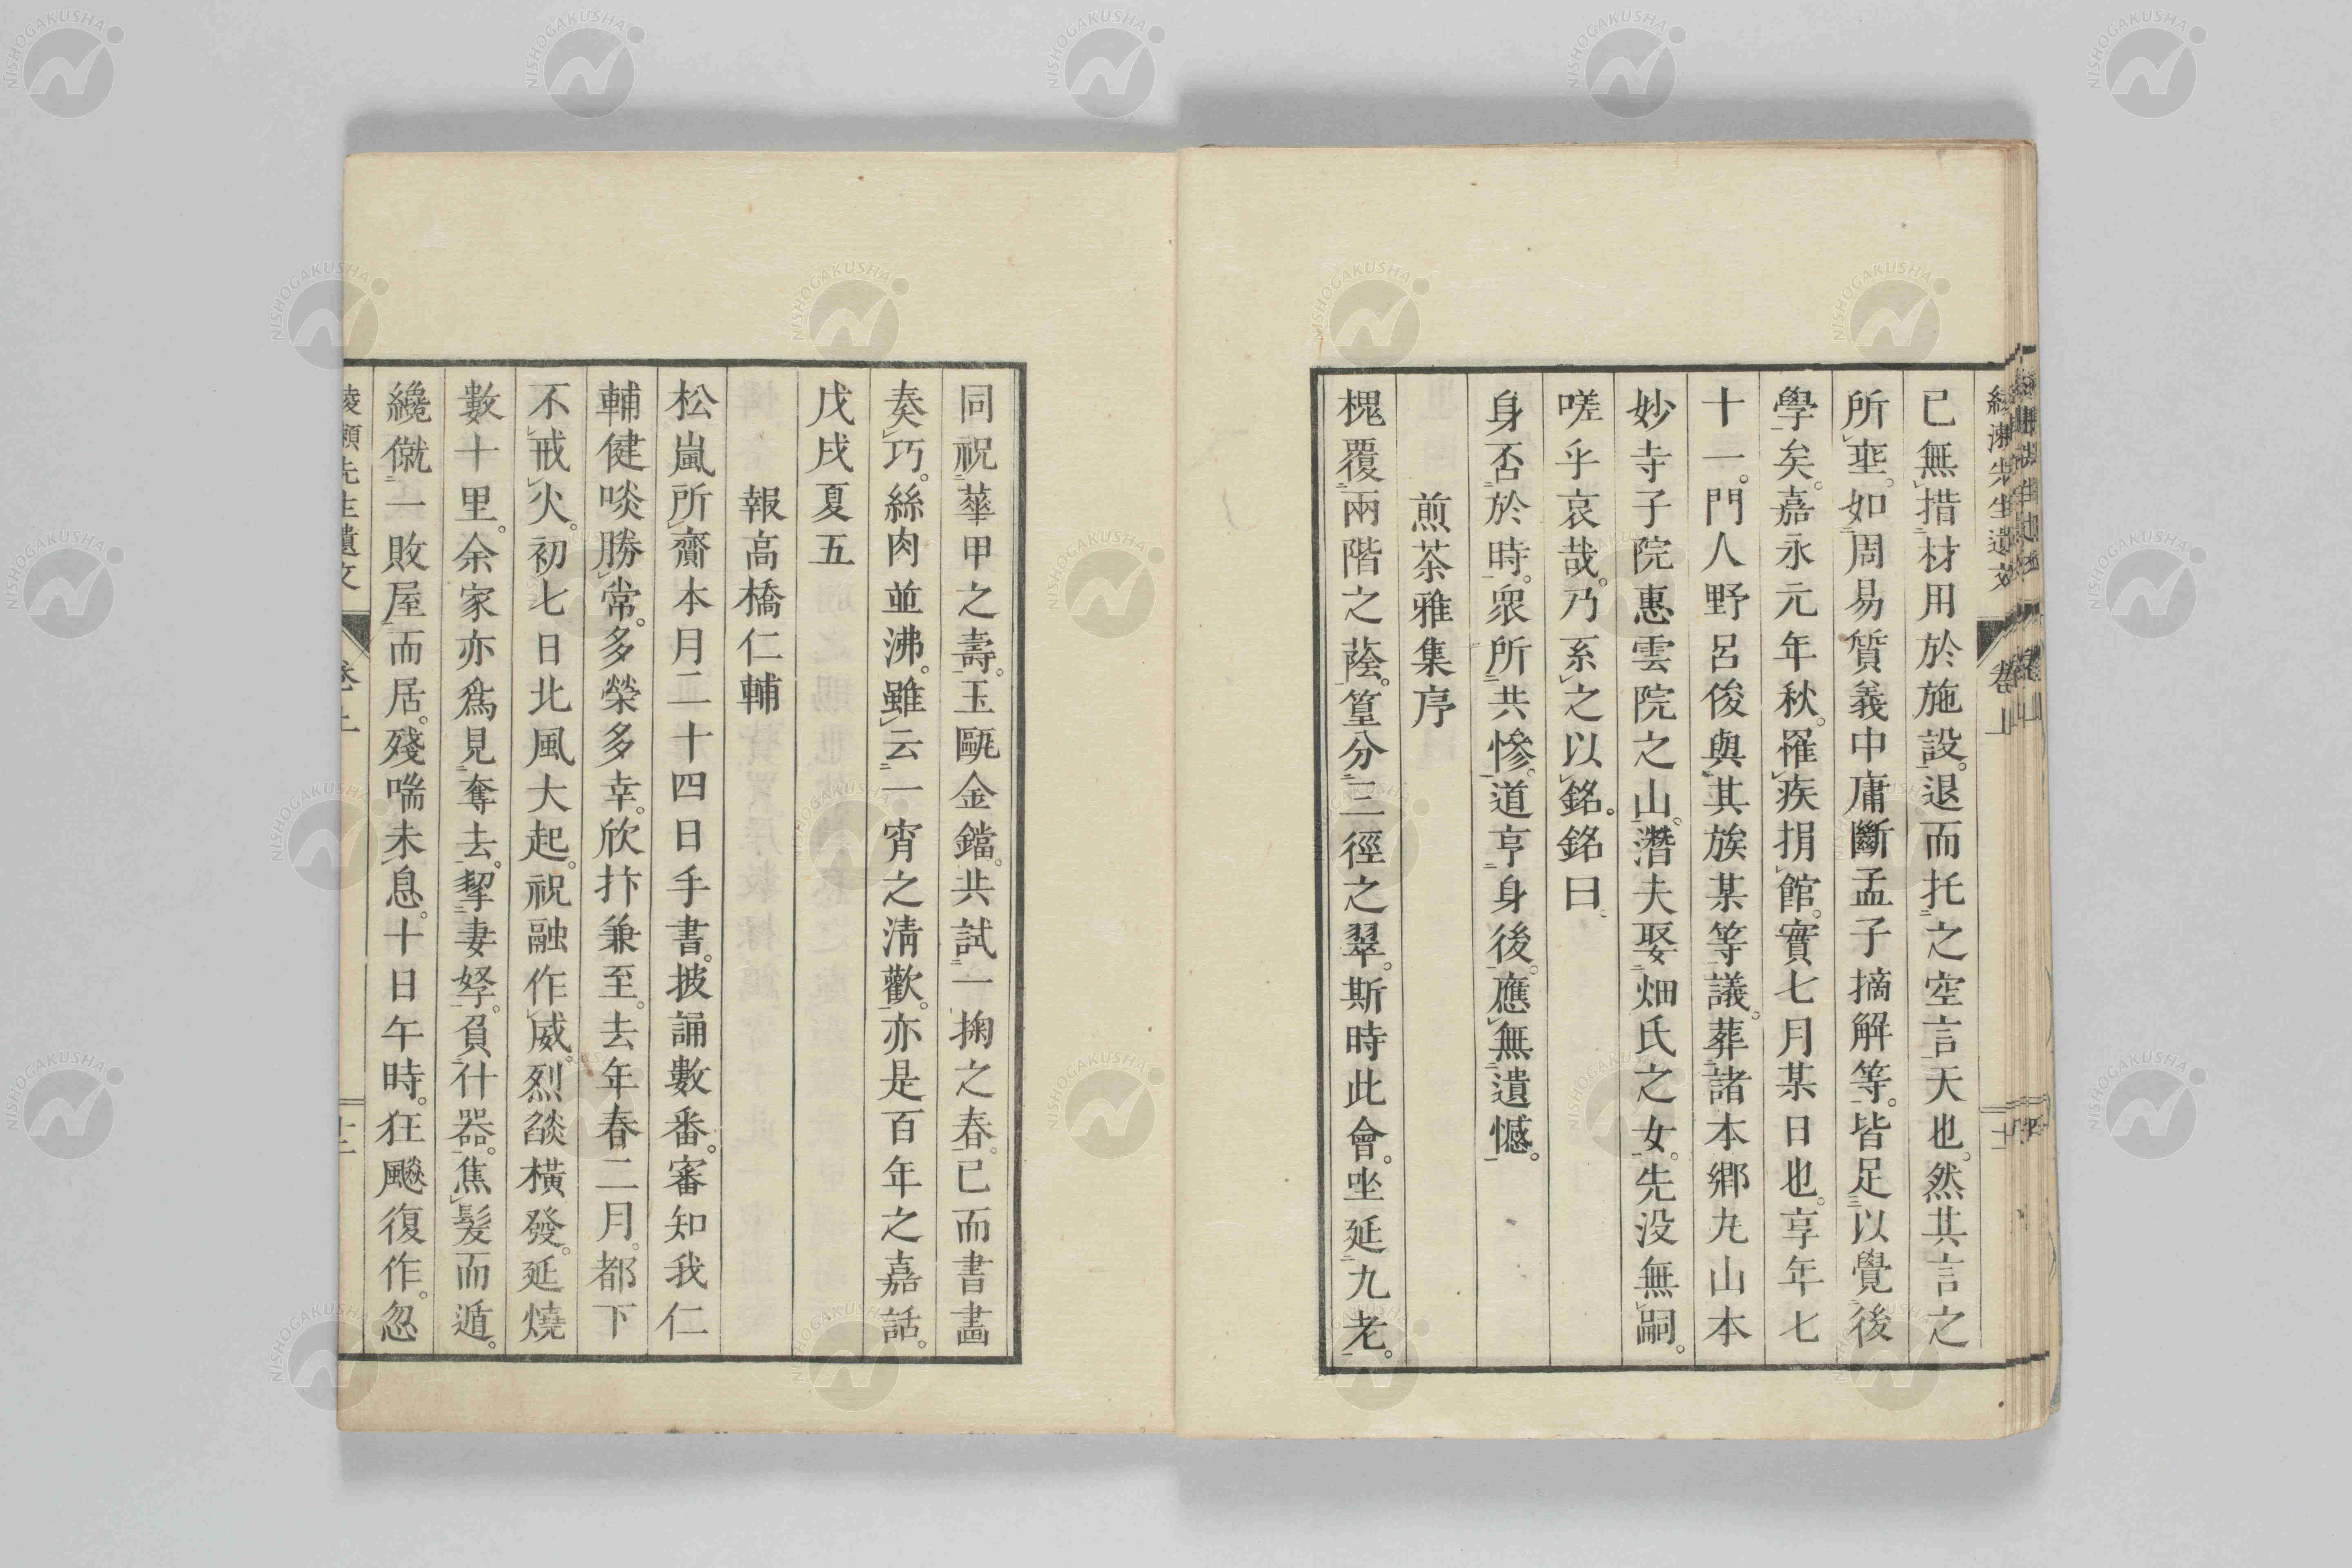 已無措材用於施設。退而托之空言天也。然其言之
所垂。如周易質義中庸斷孟子摘解等。皆足以覺後
學矣。嘉永元年秋。罹疾捐館。實七月某日也。享年七
十一。門人野呂俊與其族某等議。葬諸本鄉丸山本
妙寺子院惠雲院之山。潛夫娶畑氏之女。先没無嗣。
嗟乎哀哉。乃系之以銘。銘曰
身否於時。衆所共慘。道亨身後。應無遺憾。
煎茶雅集序
槐覆兩階之蔭。篁分三徑之翠。斯時此會。坐延九老。
同祝華甲之壽。玉甌金鐺。共試一掬之春。已而書畵
奏巧。絲肉並沸。雖云一宵之淸歡。亦是百年之嘉話。
戊戌夏五
報高橋仁輔
松嵐所齎本月二十四日手書。披誦數番。審知我仁
輔健啖勝常。多榮多幸。欣抃兼至。去年春二月。都下
不戒火。初七日北風大起。祝融作威。烈燄橫發。延燒
數十里。余家亦爲見奪去。挈妻孥。負什器。焦髮而遁。
纔僦一敗屋而居。殘喘未息。十日午時。狂飈復作。忽
先生遺文
卷上
NISHOGAKUSHA